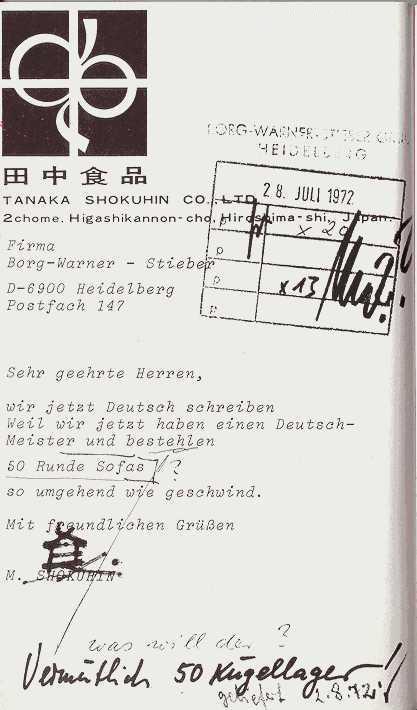 田中食品
TANAKA SHOKUHIN CO., LTD.
2chome, Higashikannon-cho, Hiroshima-shi, Japan.
BORG-WARNER-STIEBER GMBH
HEIDELBERG
28. JULI 1972
x 20
x 13
Firma
Borg-Warner - Stieber
D-6900 Heidelberg
Postfach 147
Sehr geehrte Herren,
wir jetzt Deutsch schreiben
Weil wir jetzt haben einen Deutsch-
Meister und bestehlen
50 Runde Sofas ?
so umgehend wie geschwind.
Mit freundlichen Grüßen
M. SHOKUHIN
was will der ?
Vermutlich 50 Kugellager!
geliefert 2.8.72